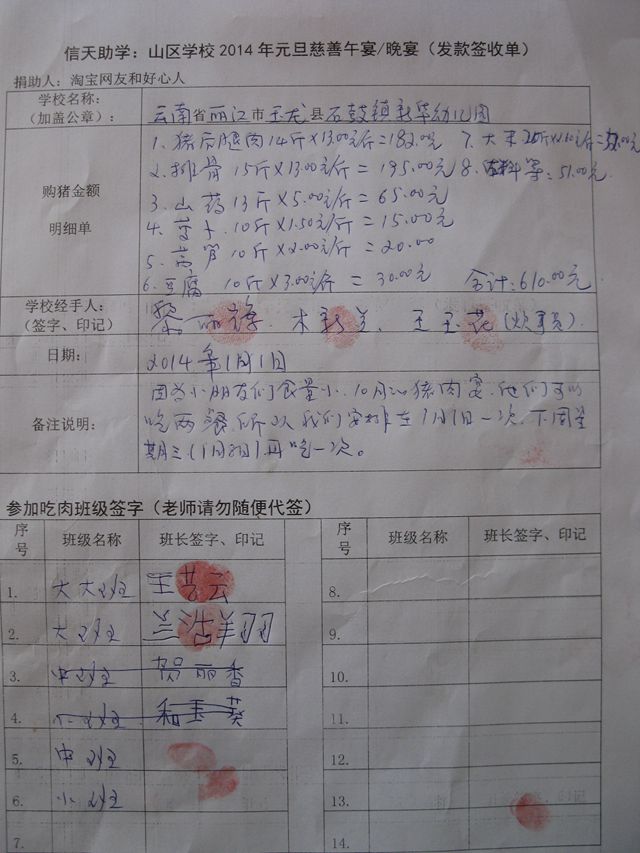 信天助学：山区学校2014年元旦慈善午宴/晚宴（发款签收单）
捐助人：淘宝网友和好心人
学校名称：
（加盖公章）：
云南省丽江市玉龙县石鼓镇新华幼儿园
购猪金额
明细单
1、猪后腿肉14斤×13.00元/斤=182.00元 7、大米
2、排骨 15斤×13.00元/斤 = 195.00元 8、等：51.00元
3、山药13斤×5.00元/斤 = 65.00元
4、萝卜 10斤×1.50元/斤 = 15.00元
5、莴笋 10斤×2.00元/斤 = 20.00
6、豆腐 10斤×3.00元/斤 = 30.00元 合计：610.00元
学校经手人：
（签字、印记）
黎丽 木新兰、王玉花（炊事员）
日期：
2014年1月1日
备注说明：
因为小朋友们食量小，10斤的猪肉宴，他们可以
吃两餐所以我们安排在1月1日一次，下周星
期三（1月8日）再吃一次。
参加吃肉班级签字（老师请勿随便代签）
序号 班级名称 班长签字、印记 序号 班级名称 班长签字、印记
1. 大大班 王芸云 8.
2. 大班 兰洁 9.
3. 中班 贺丽香 10.
4. 小班 和玉葵 11.
5. 中班 12.
6. 小班 13.
7. 14.